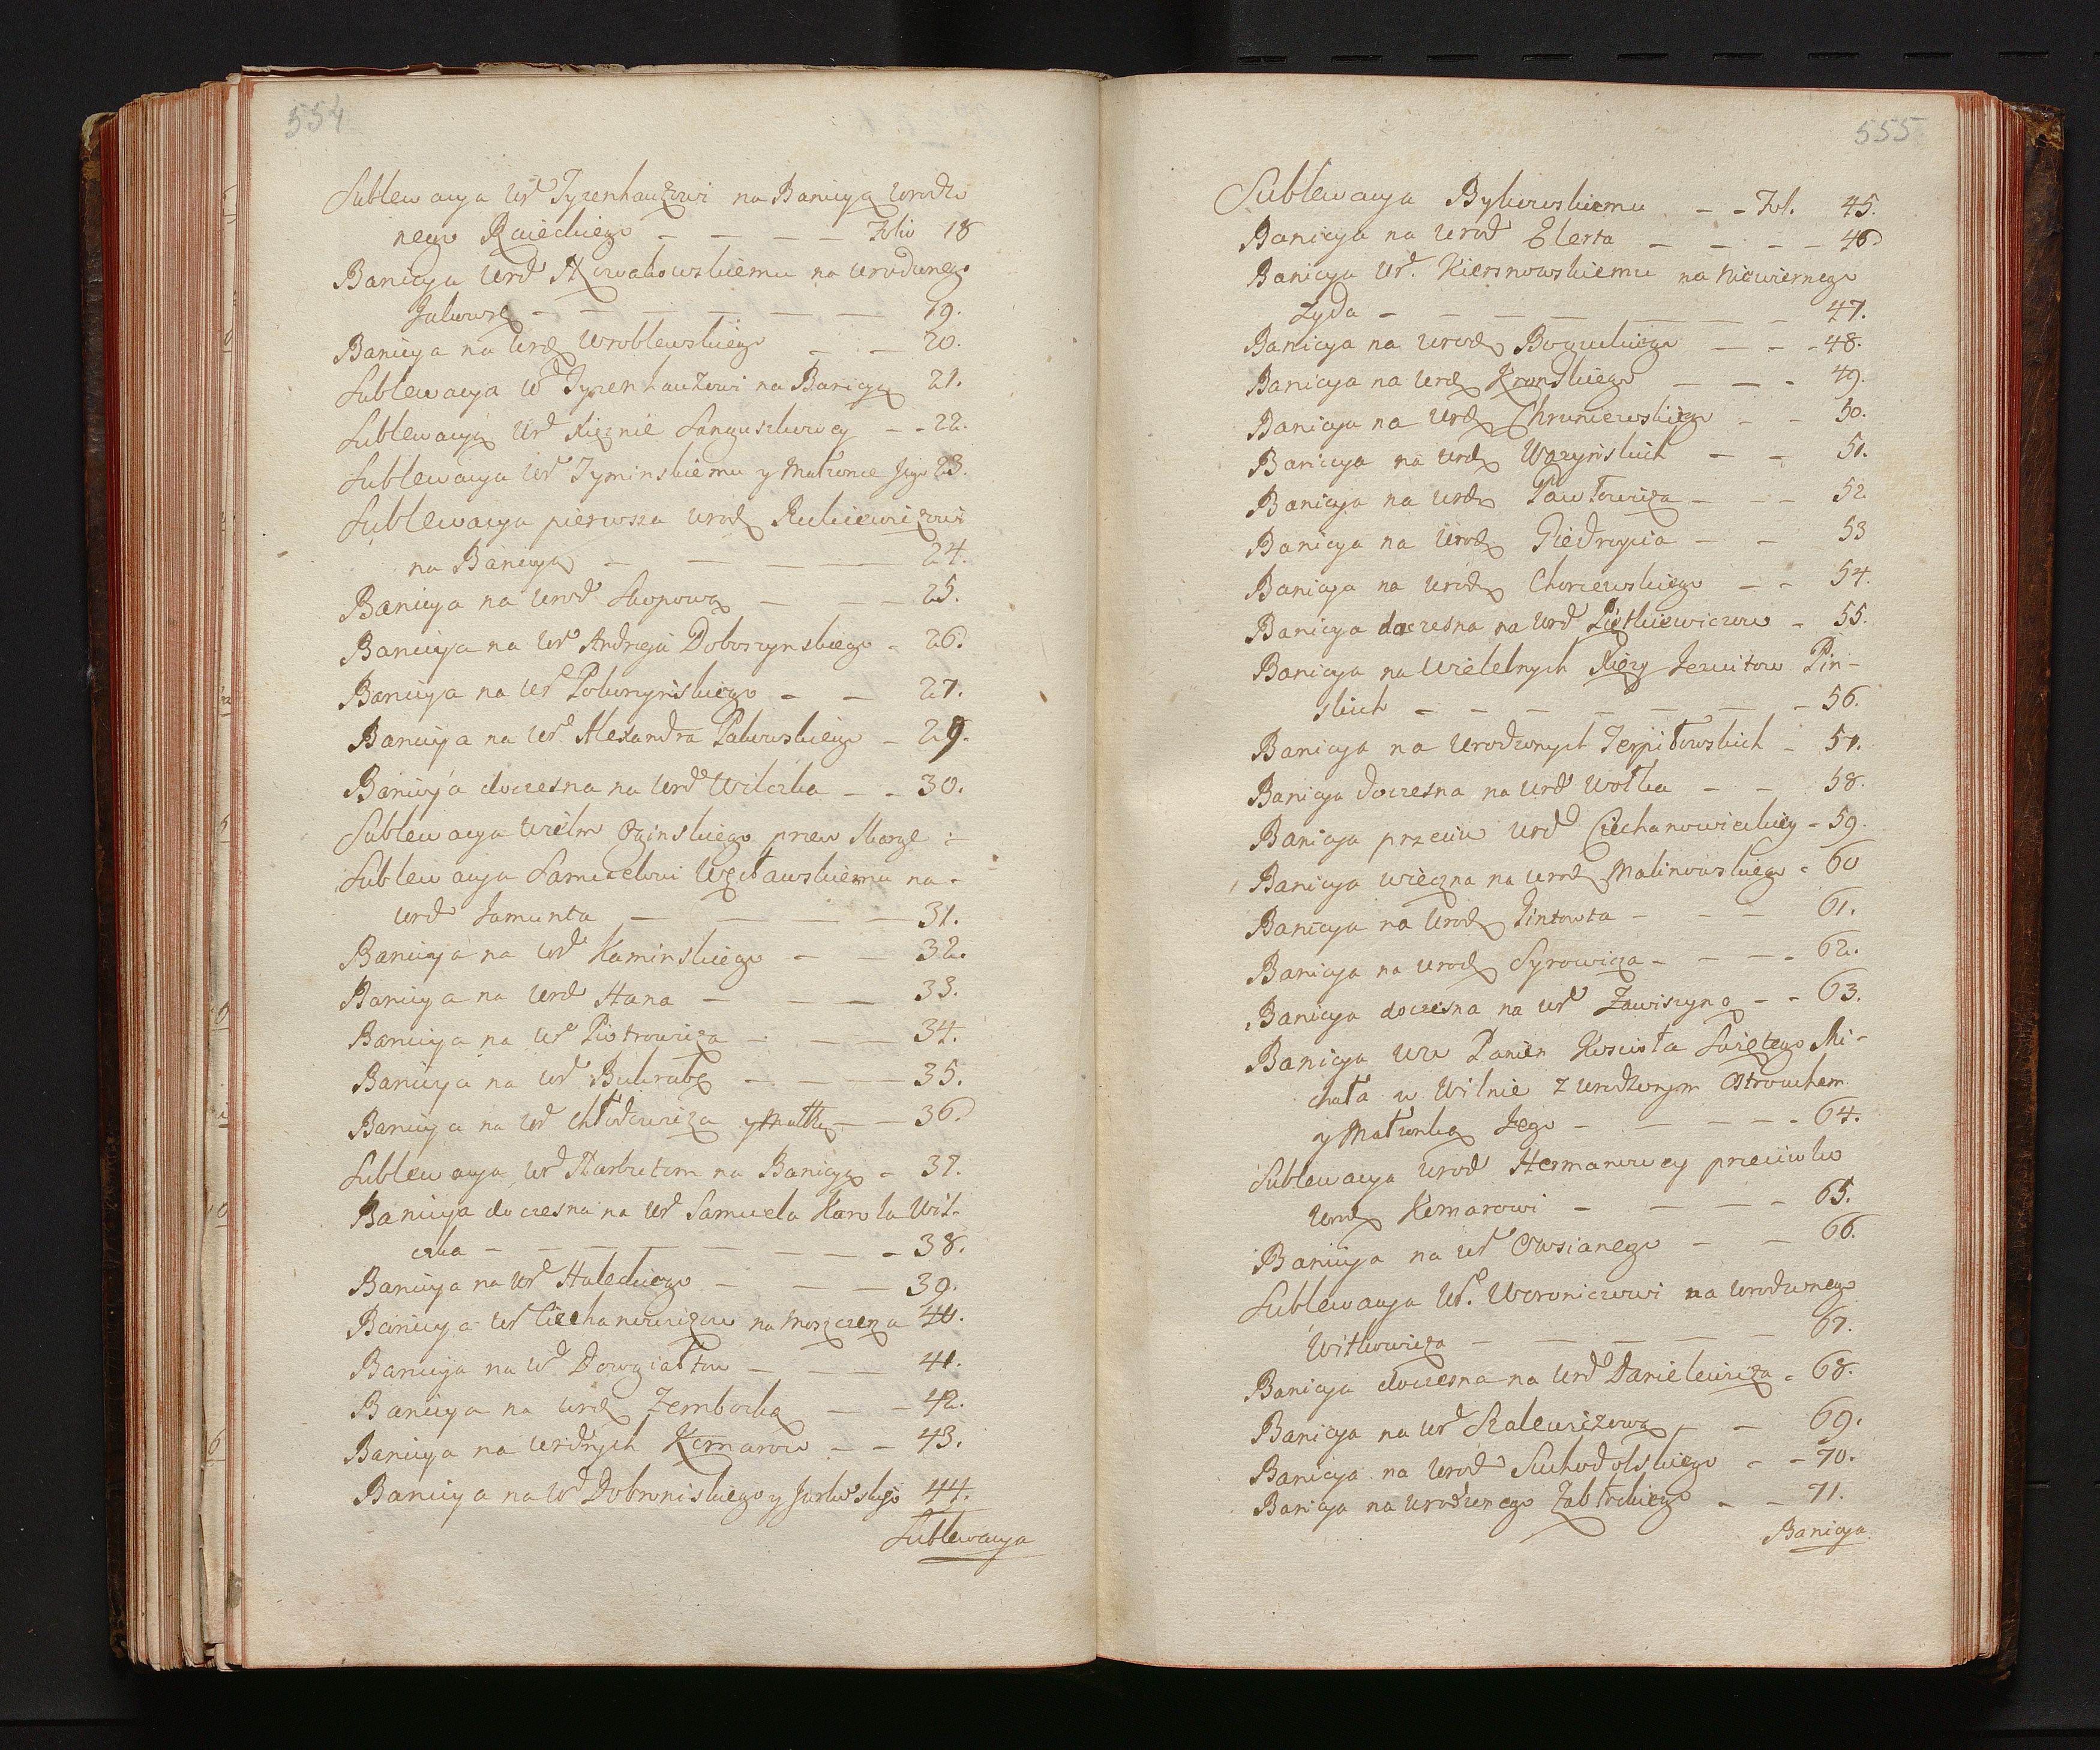 554
Sublewacya Urd Tyzenhauzowi na Banicyą Urodzo
nego Raieckiego — — — — Folio 18
Banicya Urd Nowakowskiemu na Urodzonego
— — — — — — 19.
Banicya na Urodz Wroblewskiego — — 20.
Sublewacya Ur Tyzenhauzowi na Banicyą 21.
Sublewacya Urd Xiężnie Sanguszkowey - - 22.
Sublewacya Ur Tyminskiemu y Małżonce Jego 23.
Sublewacya pierwsza Urodz
na Banicyą — — — — 24.
Banicya na Urod Skopową — — — 25.
Banicya na Ur Andrzeja Doboszynskiego - 26.
Banicya na Ur - — 27.
Banicya na Ur Alexandra - 29.
Banicya doczesna na Urd Wilczka - - 30.
Sublewacya Wielm Oginskiego przez Skargę :-
Sublewacya Samuelowi Węcławskiemu na-
Urd Jamunta — — — — 31.
Banicya na Urd Kaminskiego — — 32.
Banicya na Urd Hana — — — 33.
Banicya na Ur Piotrowicza — — — 34.
Banicya na Urd — — — 35.
Banicya na Urd Chłodowicza y Matkę — — 36
Sublewacya Urd Narbutom na Banicyą - 37.
Banicya doczesna na Ur Samuela Karola Wil-
czka — — — — — — - 38.
Banicya na Ur Haleckiego — — — 39.
Banicya Ur na 40.
Banicya na Ur Dowgiałłow — — 41.
Banicya na Urodz Zembocką — — 42.
Banicya na Urdnych Komarow — - 43.
Banicya na Ur Dobroniskiego y 44.
Sublewacya
555
Sublewacya Bykowskiemu - - Fol. 45.
Banicya na Urod Elerta — — - - 46
Banicya Ur. Kiersnowskiemu na Niewiernego
Żyda — — — — — — — 47.
Banicya na Urodz Boguckiego — - - 48.
Banicya na Urodz Kronskiego — — - 49.
Banicya na Urodz — - 50.
Banicya na Urodz Wazynskich — - 51.
Banicya na Urodz Pawłowicza — - - 52
Banicya na Urodz Giedroycia — - 53
Banicya na Urodz Chorzewskiego — - 54.
Banicya doczesna na Urd Pietkiewiczow - 55.
Banicya na Wielebnych Xięży Jezuitow Pin-
skich — — — — — — - 56.
Banicya na Urodzonych Jerpiłowskich - 57.
Banicya doczesna na Urd Wołka — - 58.
Banicya przeciw Urd Ciechanowieckiey - 59.
Banicya wieczna na Urodz Malinowskiego - 60
Banicya na Urodz Gintowta — — — 61.
Banicya na Urodz Syrowicza — - — - 62.
Banicya doczesna na Ur Zawiszyną - - 63.
Banicya Panien Koscioła Swiętego Mi-
chała w Wilnie z Urodzonym Ostrouchem
y Małżonką Jego — — — — - 64.
Sublewacya Urod Hermanowey przeciwko
Urodz Komarowi — — — - 65.
Banicya na Ur Owsianego — — 66.
Sublewacya Ur. Woroniczowi na Urodzonego
Witkowicza — — — — — 67.
Banicya doczesna na Urd Danielewicza - 68.
Banicya na Ur Szalewiczową — — 69.
Banicya na Urod Suchodolskiego - - 70.
Banicya na Urodzonego Zabłockiego - - 71.
Banicya